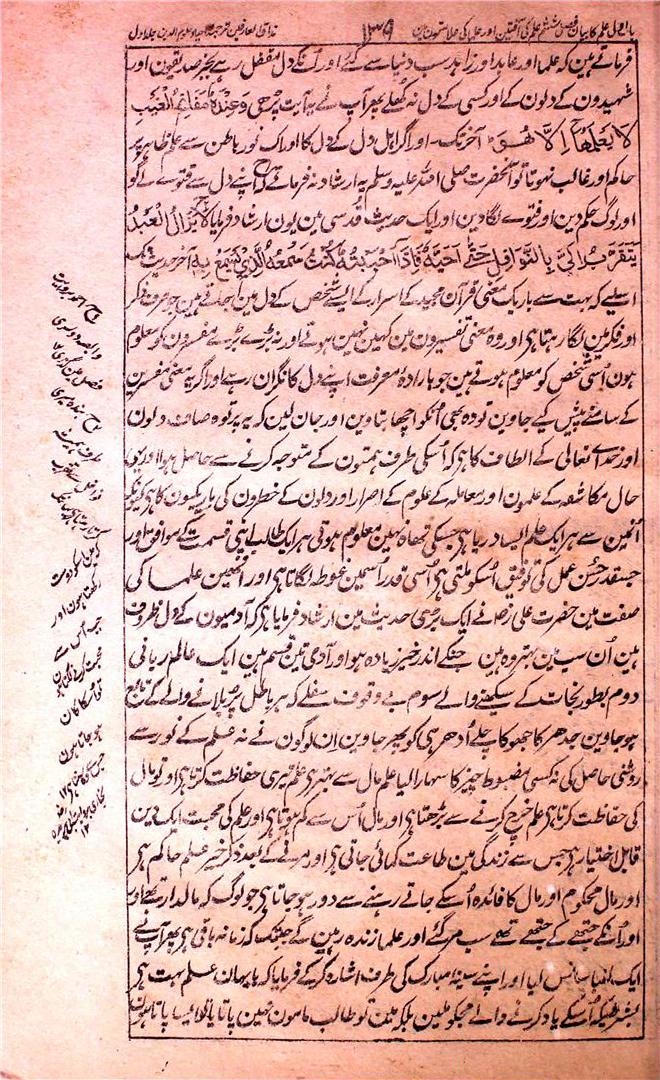 باب اول علم کا بیان فصل ششم علم کی آفتین اور علما کی علامتون مین
۱۳۹
مذاق العارفین ترجمہ احیاء علوم الدین جلد اول
فرماتے ہین کہ علما اور عابد اور زاہد سب دنیا سے گئے اور اُنکے دل مقفل رہے بجز صدیقون اور
شہیدون کے دلون کے اور کسی کے دل نہ کھلے پھر آپ نے یہ آیت پڑھی وَعِنْدَهُ مَفَاتِحُ الْغَيْبِ
لَا يَعْلَمُهَا إِلَّا هُوَ آخر تک۔ اور اگر اہل دل کے دل کا ادراک نور باطن سے علم ظاہر پر
حاکم اور غالب نہوتا تو آنحضرت صلی اللہ علیہ وسلم یہ ارشاد نہ فرماتے کہ اپنے دل سے فتوے لے گو
اور لوگ حکم دین اور فتوے لگا دین اور ایک حدیث قدسی مین یون ارشاد فرمایا لَا يَزَالُ الْعَبْدُ
يَتَقَرَّبُ اِلَيَّ بِالنَّوَافِلِ حَتّٰى اُحِبَّهُ فَاِذَا اَحْبَبْتُهُ كُنْتُ سَمْعَهُ الَّذِيْ يَسْمَعُ بِهٖ آخر حدیث تک
اسلیے کہ بہت سے باریک معنی قرآن مجید کے اسرار کے ایسے شخص کے دل مین آ جاتے ہین جو صرف ذکر
اور فکر مین لگا رہتا ہی اور وہ معنی تفسیرون مین کہین نہین ہوتے اور نہ بڑے بڑے مفسرون کو معلوم
ہون اُسی شخص کو معلوم ہوتے ہین جو بارادۂ معرفت اپنے دل کا نگران رہے اور اگر یہ معنی مفسرین
کے سامنے پیش کیے جاوین تو وہ بھی اُنکو اچھا بتاوین اور جان لین کہ یہ پرتوہ صاف دلون
اور خداے تعالی کے الطاف کا ہی کہ اُسکی طرف ہمتون کے متوجہ کرنے سے حاصل ہوا اور یہی
حال مکاشفہ کے علمون اور معاملہ کے علوم کے اسرار اور دلون کے خطرون کی باریکیون کا ہی کیونکہ
اُنمین سے ہر ایک علم ایسا دریا ہی جسکی تھاہ نہین معلوم ہوتی ہر ایک طالب اپنی قسمت کے موافق اور
جسقدر حسن عمل کی توفیق اُسکو ملتی ہی اُسی قدر اُسمین غوطہ لگاتا ہی اور اُنھین علما کی
صفت مین حضرت علی رضہ نے ایک بڑی حدیث مین ارشاد فرمایا ہی کہ آدمیون کے دل ظروف
ہین اُن سب مین بہتر وہ ہین جنکے اندر خیر زیادہ ہو اور آدمی تین قسم ہین ایک عالم ربانی
دوم بطور نجات کے سیکھنے والے سوم بے وقوف سفلے کہ ہر باطل پر چلانے والے کے تابع
ہو جاوین جدھر کا جھوکا چلے اُدھر ہی کو پھر جاوین ان لوگون نے نہ علم کے نور سے
روشنی حاصل کی نہ کسی مضبوط چیز کا سہارا لیا علم مال سے بہتر ہی علم تیری حفاظت کرتا ہی اور تو مال
کی حفاظت کرتا ہی علم خرچ کرنے سے بڑھتا ہی اور مال اُس سے کم ہوتا ہی اور علم کی محبت ایک دین
قابل اختیار ہی جس سے زندگی مین طاعت کمائی جاتی ہی اور مرنے کے بعد ذکر خیر علم حاکم ہی
اور مال محکوم اور مال کا فائدہ اُسکے جاتے رہنے سے دور ہو جاتا ہی جو لوگ کہ مالدار تھے اور
اور اُنکے جتھے کے جتھے تھے سب مر گئے اور علما زندہ رہین گے جبتک کہ زمانہ باقی ہی پھر آپ نے
ایک لنبا سانس لیا اور اپنے سینہ مبارک کی طرف اشارہ کر کے فرمایا کہ یہان علم بہت ہی
بشرطیکہ اُسکے یاد کرنے والے مجکو ملین بلکہ مین تو طالب مامون نہین پاتا یا تو ایسا پاتا ہون
کہ مین اسکو دوست
رکھتا ہون اور
جب اُس سے
محبت کرنے لگتا ہون
تو اُسکا کان
ہو جاتا ہون